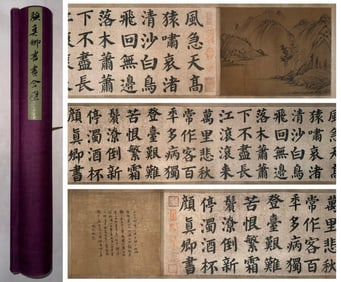 顏真卿書
風急天高
猿嘯哀渚
清沙白鳥
飛回無邊
落木蕭蕭
下不盡長
猿嘯哀渚
清沙白鳥
飛回無邊
落木蕭蕭
下不盡長
江滾滾來
萬里悲秋
常作客百
年多病獨
登臺艱難
苦恨繁霜
鬢潦倒新
停濁酒杯
顏真卿書
萬里悲秋
常作客百
年多病獨
登臺艱難
苦恨繁霜
鬢潦倒新
停濁酒杯
顏真卿書